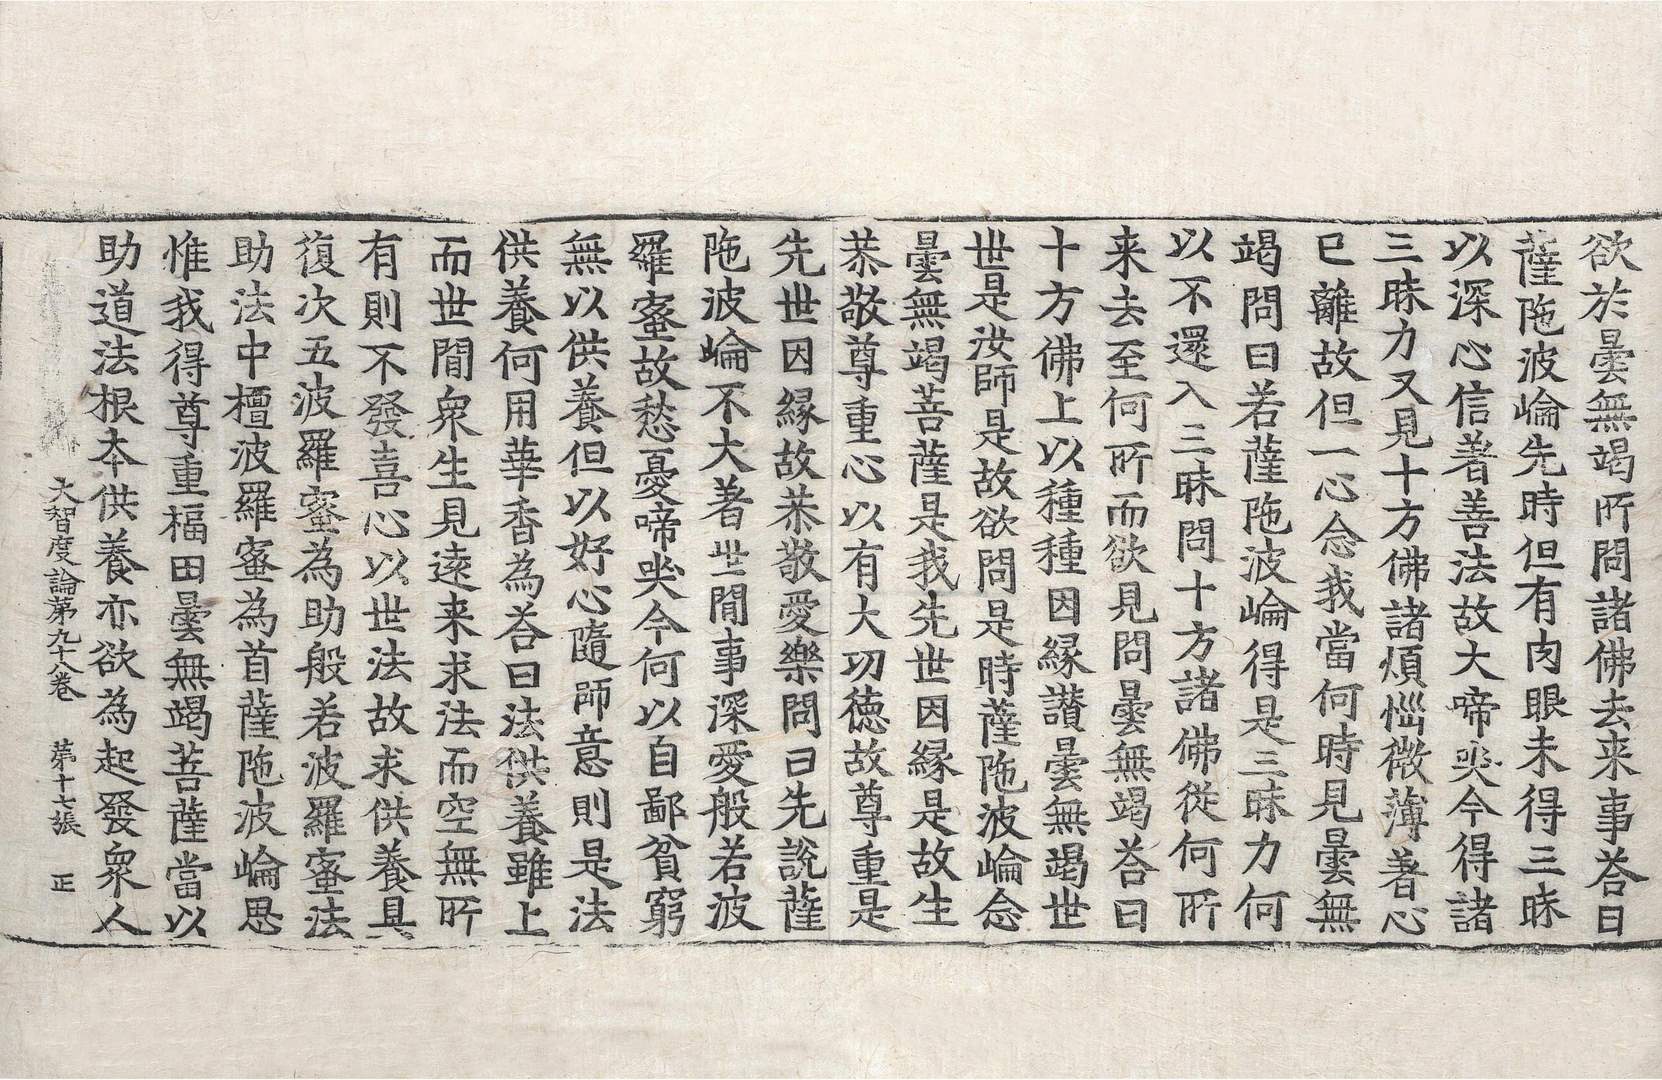 欲於曇無竭所問諸佛去来事荅曰
薩陁波崘先時但有肉眼未得三昧
以深心信著善法故大啼哭今得諸
三昧力又見十方佛諸煩惱微薄著心
已離故但一心念我當何時見曇無
竭問曰若薩陁波崘得是三昧力何
以不還入三昧問十方諸佛從何所
来去至何所而欲見問曇無竭荅曰
十方佛上以種種因緣讃曇無竭世
世是汝師是故欲問是時薩陁波崘念
曇無竭菩薩是我先世因緣是故生
恭敬尊重心以有大功徳故尊重是
先世因緣故恭敬愛樂問曰先說薩
陁波崘不大著世閒事深愛般若波
羅蜜故愁憂啼哭今何以自鄙貧窮
無以供養但以好心隨師意則是法
供養何用華香為荅曰法供養雖上
而世閒衆生見遠来求法而空無所
有則不發喜心以世法故求供養具
復次五波羅蜜為助般若波羅蜜法
助法中檀波羅蜜為首薩陁波崘思
惟我得尊重福田曇無竭菩薩當以
助道法根本供養亦欲為起發衆人
大智度論第九十八卷 第十七張 正